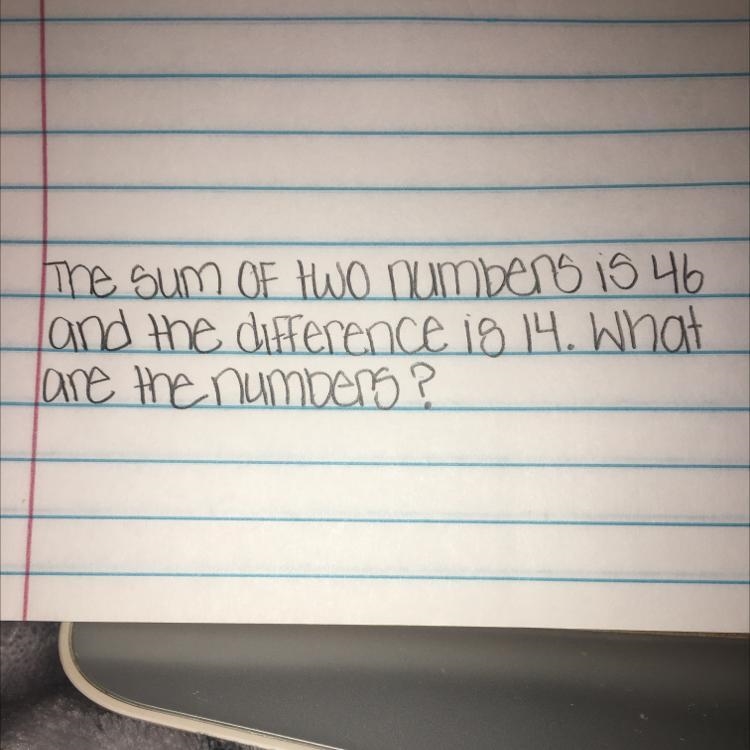 The sum OF two numbers is 46
and the difference is 14. What
are the numbers?